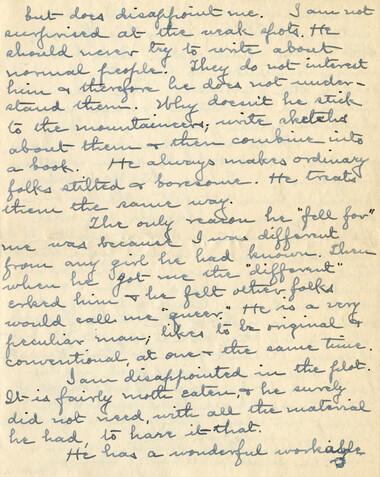 but does disappoint me. I am not
surprised at the weak spots. He
should never try to write about
normal people. They do not interest
him & therefore he does not under-
stand them. Why doesn't he stick
to the mountaineers; write sketches
about them & then combine into
a book. He always makes ordinary
folks stilted & boresome. He treats
them the same way.
The only reason he "fell for"
me was because I was different
from any girl he had known. Then
when he got me the "different"
erked him & he felt other folks
would call me "queer." He is a very
peculiar man; likes to be original &
conventional at one & the same time.
I am disappointed in the plot.
It is fairly moth eaten, & he surely
did not need, with all the material
he had, to have it that.
He has a wonderful workable